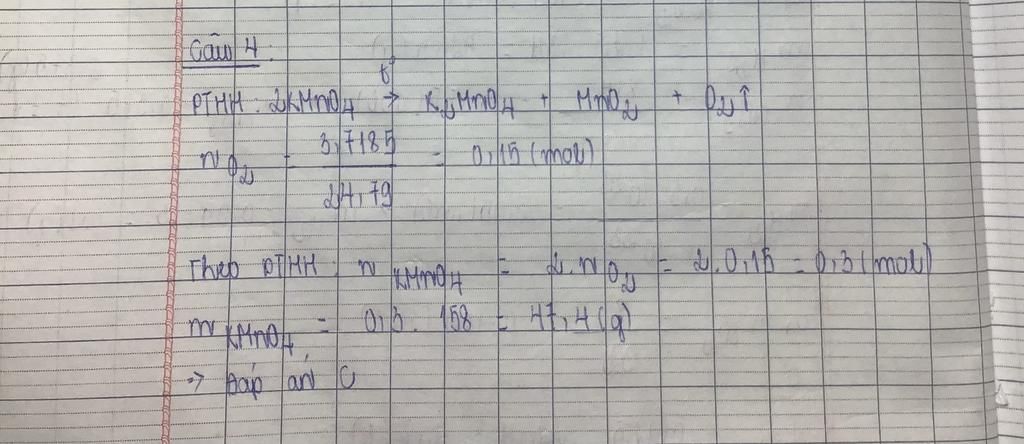 Câu 4:
t°
PTHH: 2KMnO4 → K2MnO4 + MnO2 + O2↑
nO2 = 3,7185 / 24,79 = 0,15 (mol)
Theo PTHH: nKMnO4 = 2.nO2 = 2.0,15 = 0,3 (mol)
mKMnO4 = 0,3. 158 = 47,4 (g)
=> Đáp án C